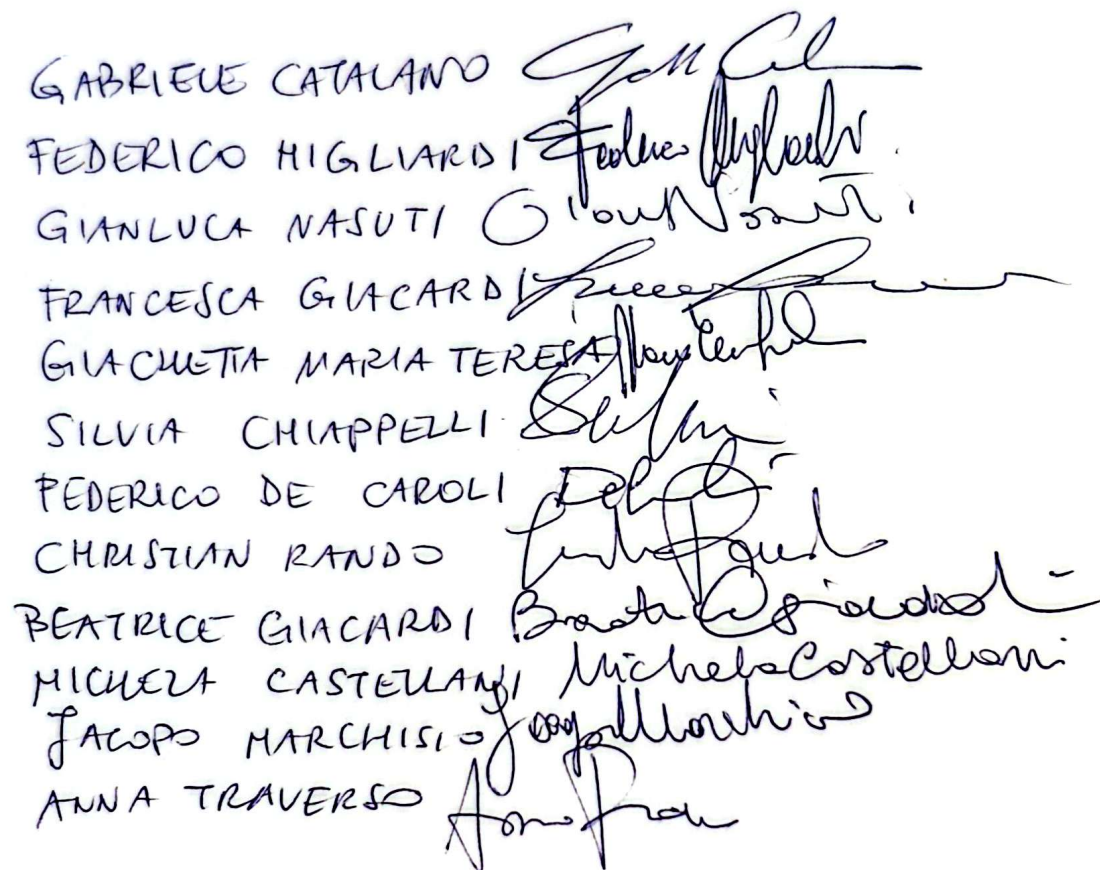 GABRIELE CATALANO
FEDERICO MIGLIARDI Federico Migliardi
GIANLUCA NASUTI Gian Nasuti
FRANCESCA GIACARDI
GIACHETTA MARIA TERESA
SILVIA CHIAPPELLI
FEDERICO DE CAROLI
CHRISTIAN RANDO
BEATRICE GIACARDI Beatrice Giacardi
MICHELA CASTELLANI Michela Castellani
JACOPO MARCHISIO Jacopo Marchisio
ANNA TRAVERSO Anna